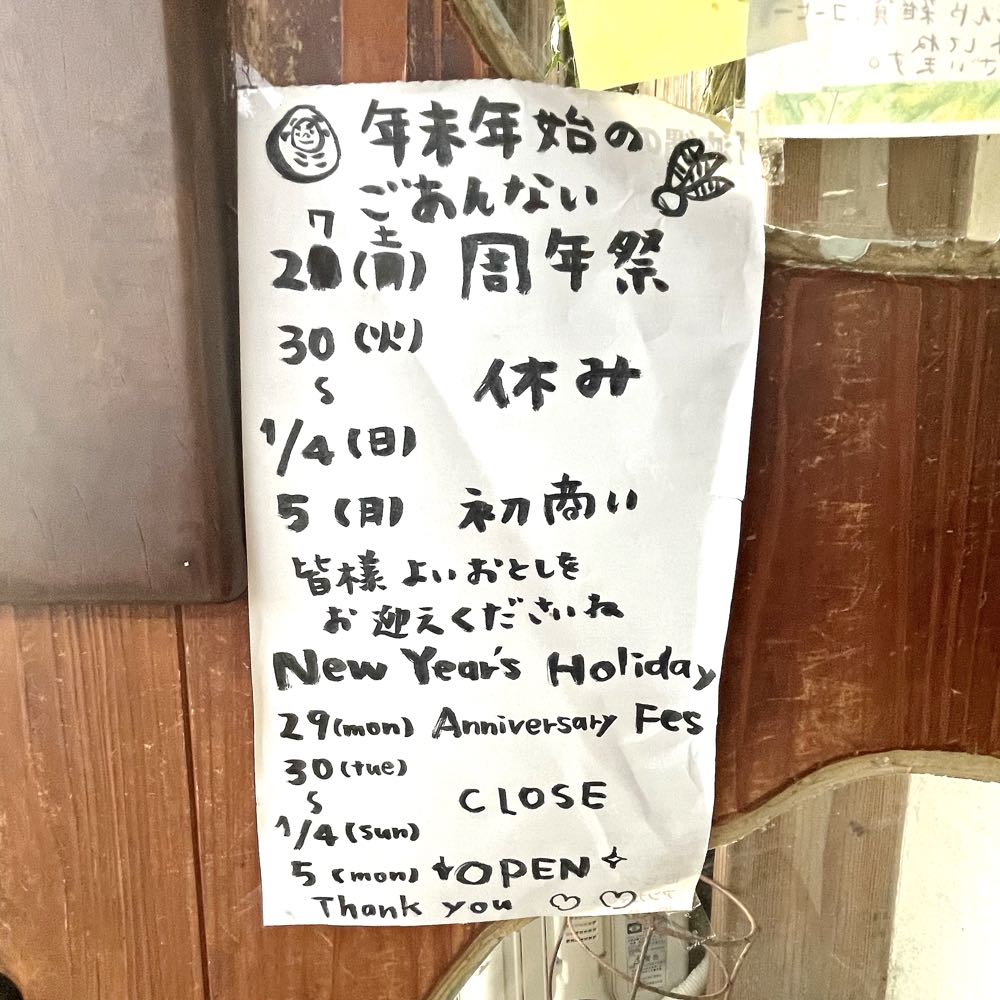 年末年始の
ごあんない
27(土) 周年祭
30(火)
S
休み
1/4(日)
5(月) 初商い
皆様よいおとしを
お迎えくださいね
New Year's Holiday
29(mon) Anniversary Fes
30(tue)
S
CLOSE
1/4(sun)
5(mon) OPEN
Thank you